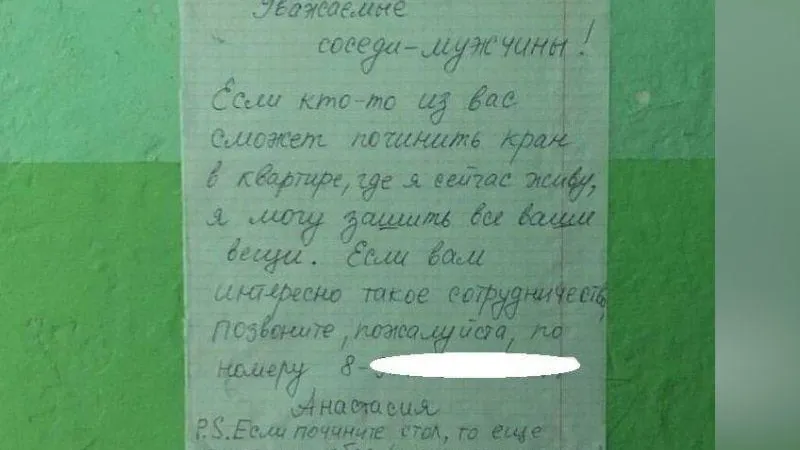 Уважаемые
соседи-мужчины!
Если кто-то из вас
сможет починить кран
в квартире, где я сейчас живу,
я могу зашить все ваши
вещи. Если вам
интересно такое сотрудничеств
позвоните, пожалуйста, по
номеру 8-
Анастасия
P.S. Если почините стол, то еще